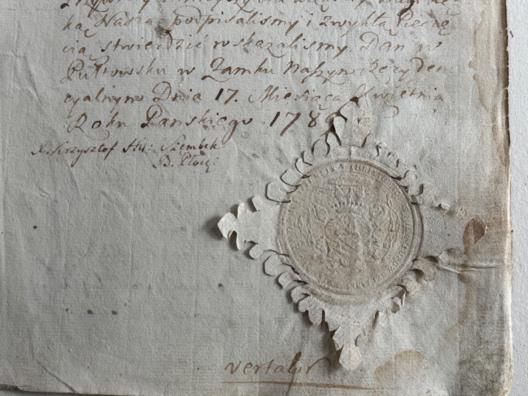 ką Naszą podpisalismy i zwykłą Pieczę
cią stwierdzić wskazalismy. Dan w
Pułtowsku w Zamku Naszym Rezyden
cyalnym Dnia 17. Miesiąca Kwietnia
Roku Panskiego 178
X. Krzysztof Hil: Szembek
B. Płocj:
vertatur